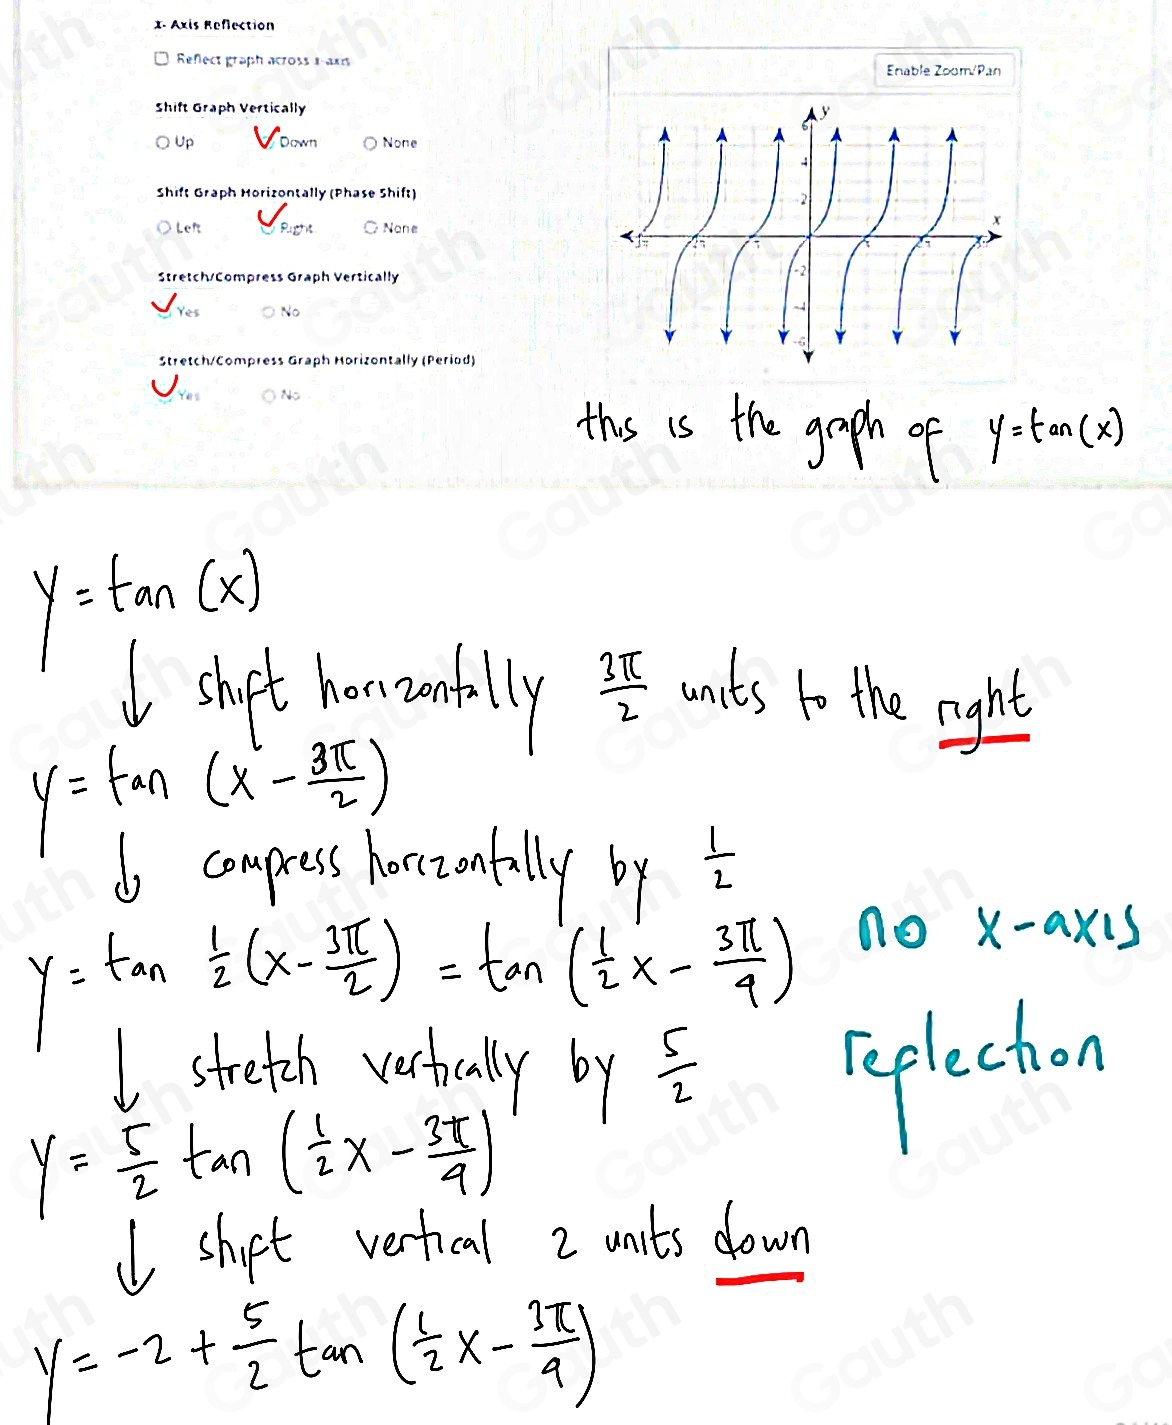 x- Axis Reflection
Reflect graph across x-axis
Enable Zoom/Pan
Shift Graph Vertically
Up Down None
Shift Graph Horizontally (Phase Shift)
Left Right None
Stretch/Compress Graph Vertically
Yes No
Stretch/Compress Graph Horizontally (Period)
Yes No
y
6
4
2
x
-2
-4
-6
this is the graph of y=tan(x)
y = tan (x)
↓ shift horizontally 3π/2 units to the right
y = tan (x - 3π/2)
↓ compress horizontally by 1/2
y = tan 1/2 (x - 3π/2) = tan (1/2 x - 3π/4)
no x-axis
reflection
↓ stretch vertically by 5/2
y = 5/2 tan (1/2 x - 3π/4)
↓ shift vertical 2 units down
y = -2 + 5/2 tan (1/2 x - 3π/4)
Gauth